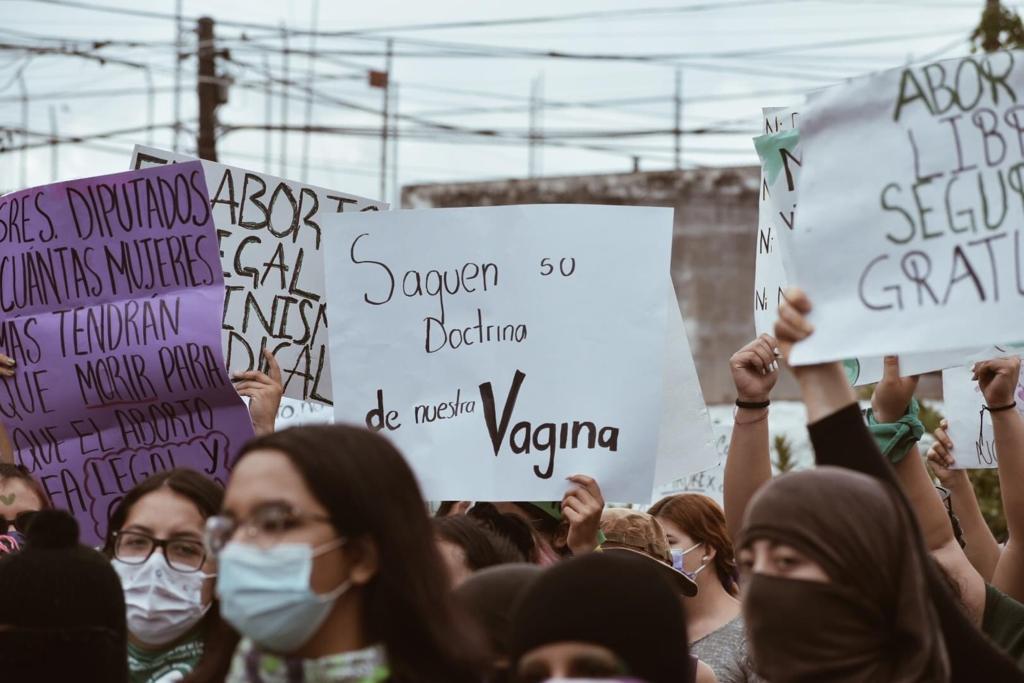 BRES. DIPUTADOS
CUÁNTAS MUJERES
MAS TENDRÁN
QUE MORIR PARA
QUE EL ABORTO
EA LEGAL Y
ABORT
EGAL
INISM
DICAL
Saquen su
Doctrina
de nuestra Vagina
ABOR
LIBR
SEGUR
GRATU